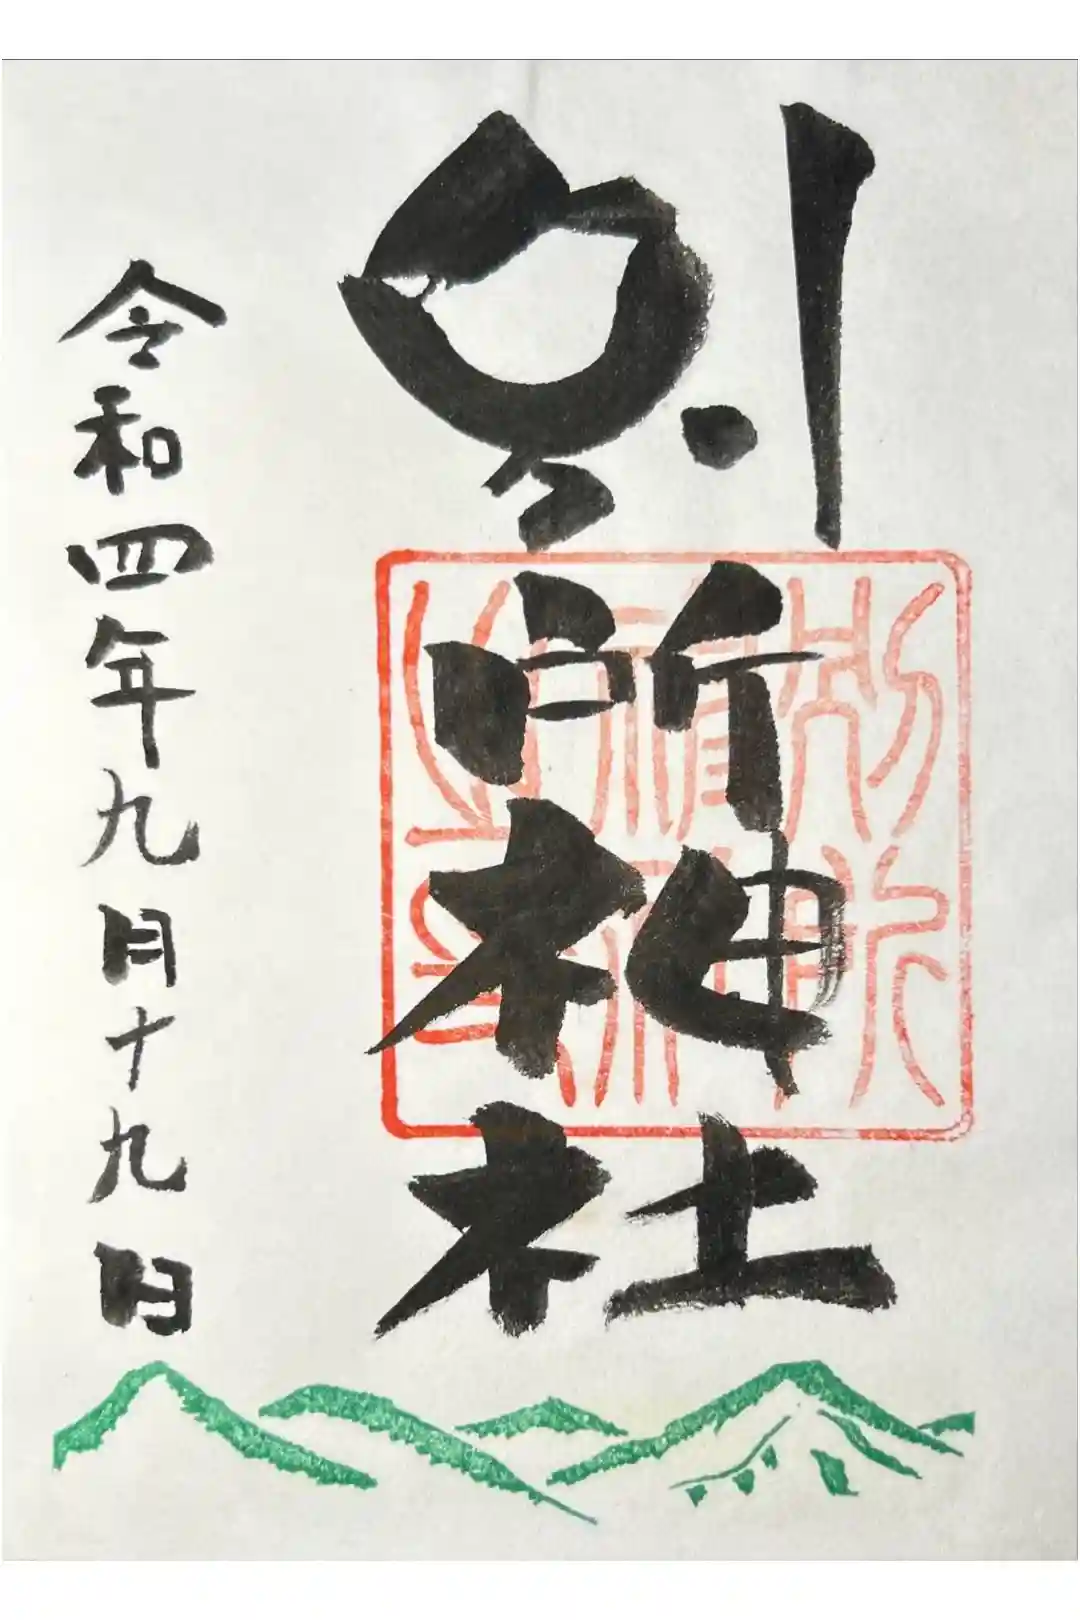 別所神社
令和四年九月十九日